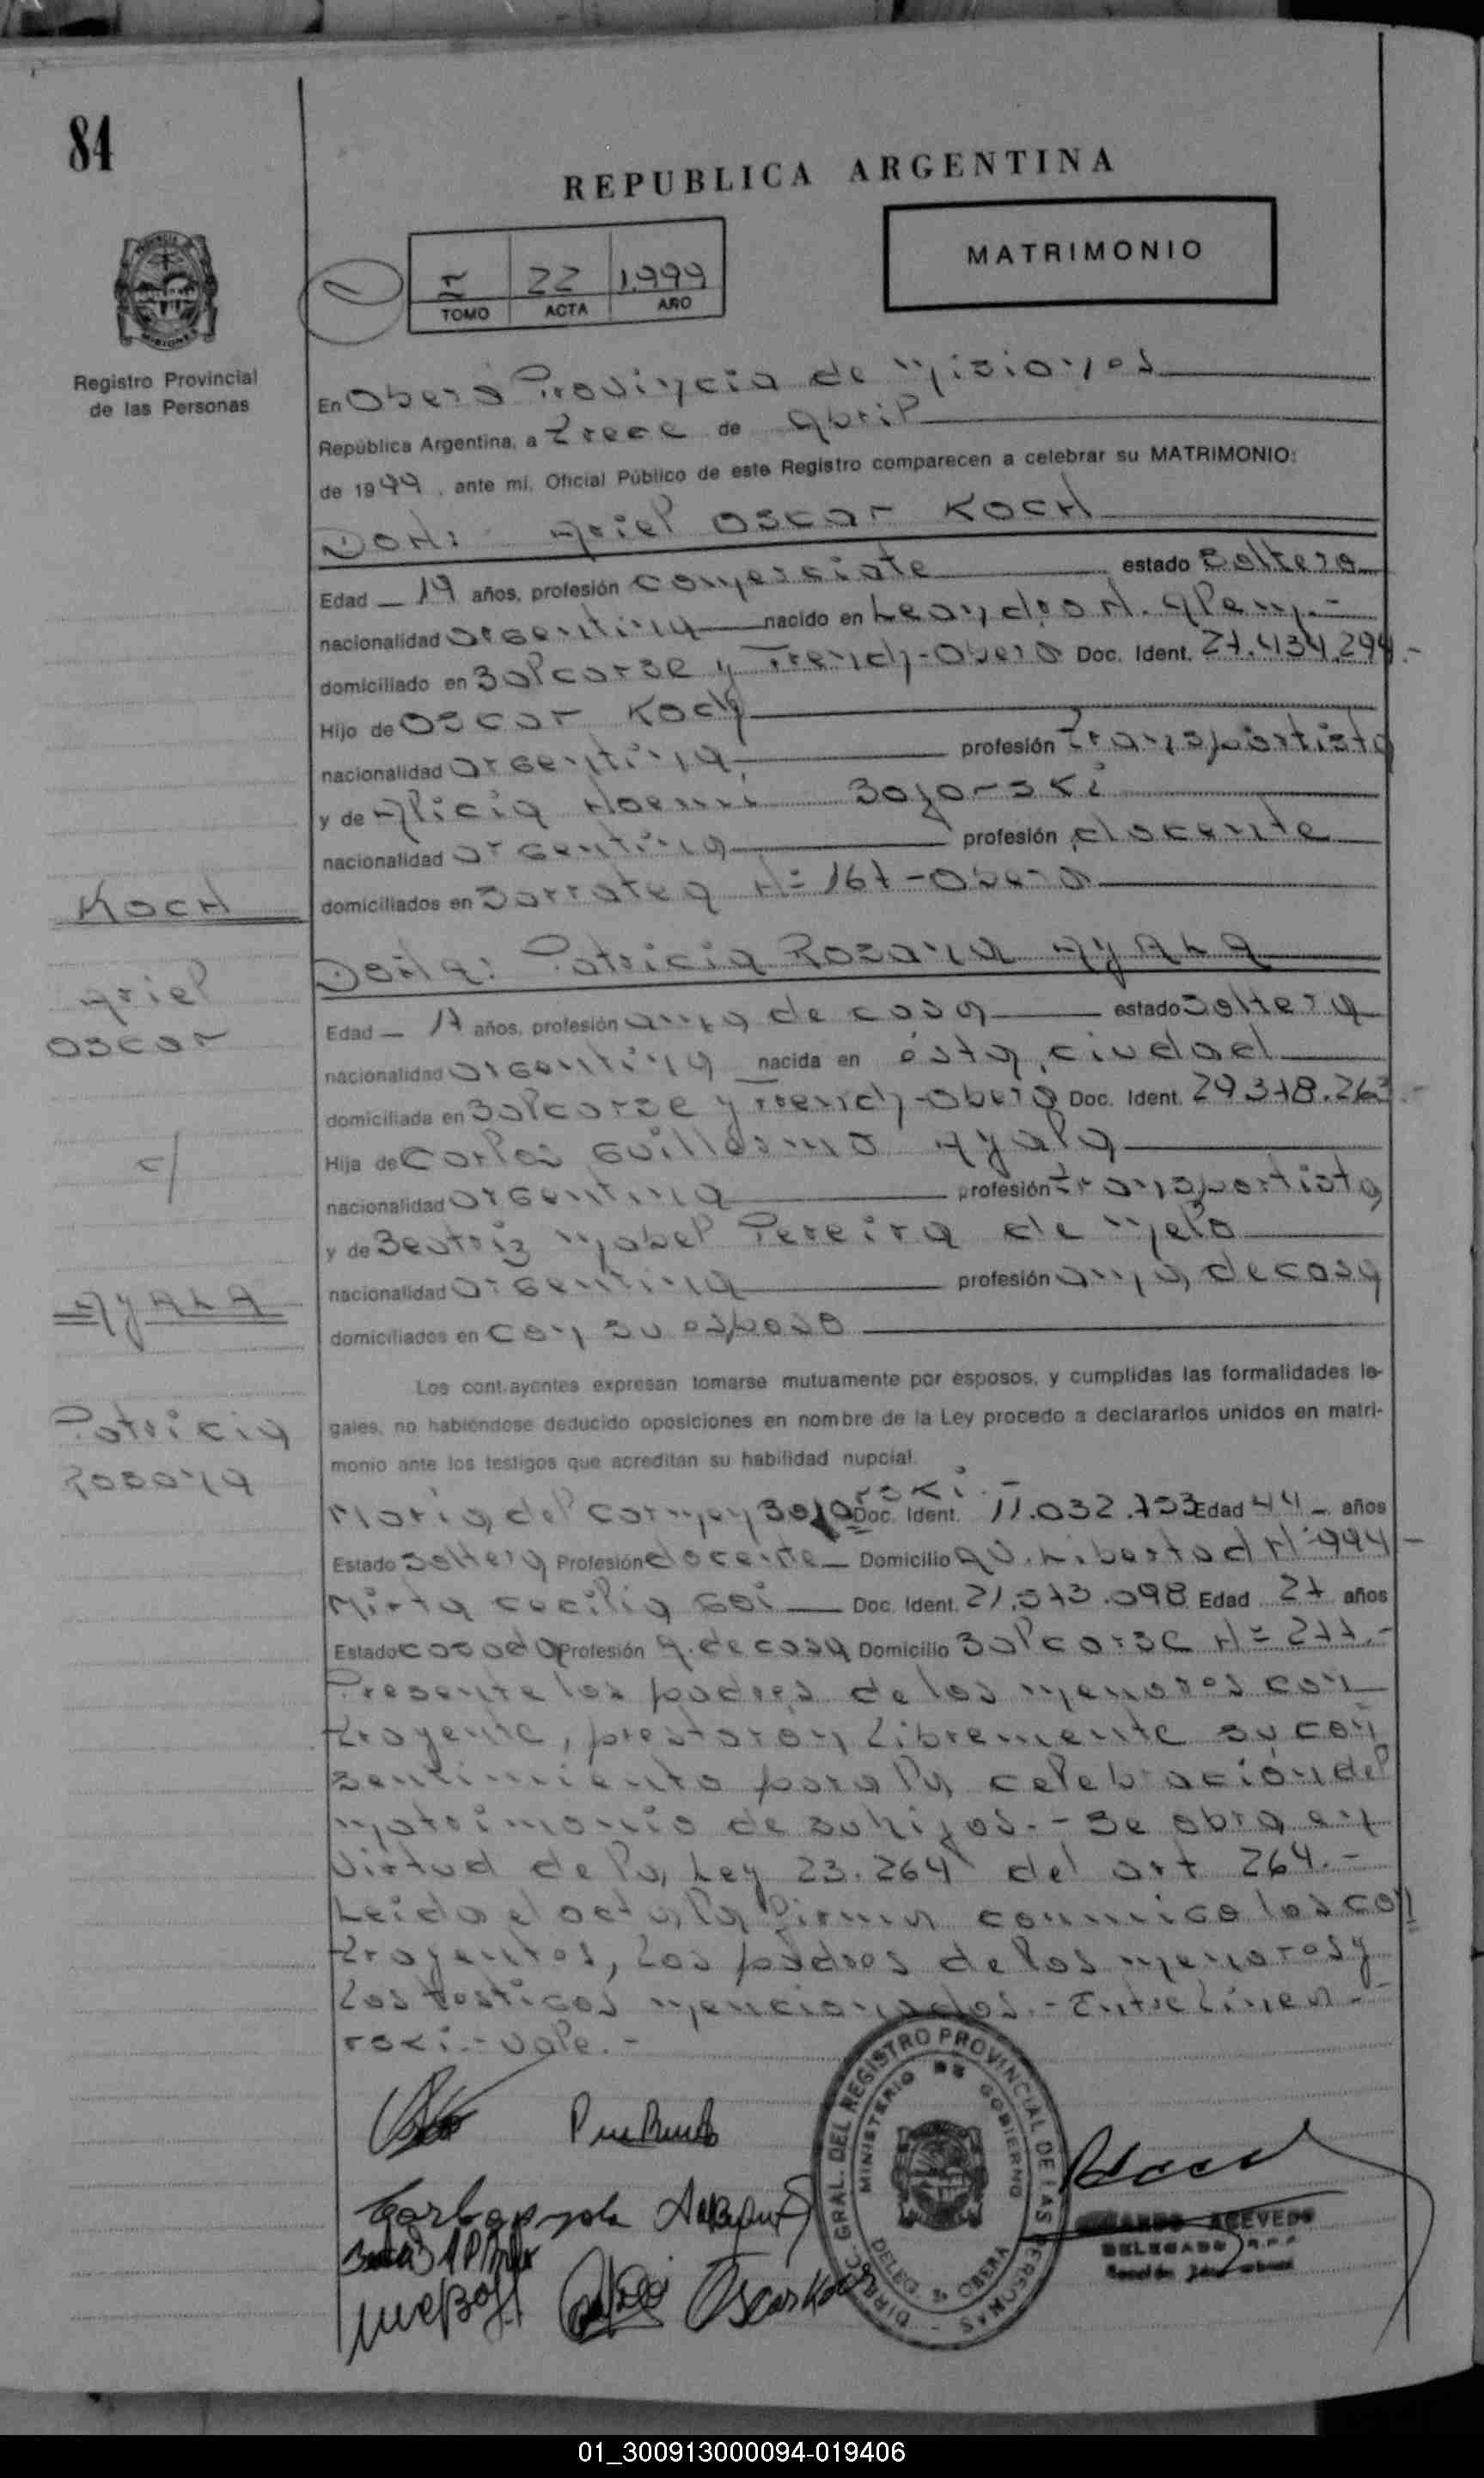 84
REPUBLICA ARGENTINA
MATRIMONIO
I 22 1.999
TOMO ACTA AÑO
Registro Provincial
de las Personas
En Oberá Provincia de Misiones
República Argentina, a trece de abril
de 1999, ante mí, Oficial Público de este Registro comparecen a celebrar su MATRIMONIO:
DON: Ariel Oscar KOCH
Edad 19 años, profesión comerciate estado soltero
nacionalidad argentina nacido en Leandro N. Alem.-
domiciliado en Balcarse y French-Oberá Doc. Ident. 27.434.294.-
Hijo de Oscar Koch
nacionalidad argentina profesión transportista
y de Alicia Noemí Bojarski
nacionalidad argentina profesión docente
domiciliados en Sarratea N= 167-Oberá
DOÑA: Patricia Rosana AYALA
Edad 17 años, profesión ama de casa estado soltera
nacionalidad argentina nacida en ésta ciudad
domiciliada en Balcarse y French-Oberá Doc. Ident. 29.378.263.-
Hija de Carlos Guillermo Ayala
nacionalidad argentina profesión transportista
y de Beatriz Mabel Pereira de Melo
nacionalidad argentina profesión ama de casa
domiciliados en con su esposo
Los contrayentes expresan tomarse mutuamente por esposos, y cumplidas las formalidades le-
gales, no habiéndose deducido oposiciones en nombre de la Ley procedo a declararlos unidos en matri-
monio ante los testigos que acreditan su habilidad nupcial.
rski.-
María del Carmen Boja Doc. Ident. 11.032.753 Edad 44 años
Estado soltera Profesión docente Domicilio Av. Libertad N=994-
Mirta Cecilia Goi Doc. Ident. 21.573.098 Edad 27 años
Estado casada Profesión A. de casa Domicilio Balcarse N= 277.-
Presente los padres de los menores con
trayente, prestaron libremente su con
sentimiento para la celebración del
matrimonio de su hijos.- Se obra en
virtud de la Ley 23.264 del art 264.-
Leida el acta, la firman conmigo los con
trayentes, los padres de los menores y
los testigos mencionados.- Entre linea-
rski.- vale.-
KOCH
Ariel
Oscar
c/
AYALA
Patricia
Rosana
Oscar Koch
DIREC. GRAL. DEL REGISTRO PROVINCIAL DE LAS PERSONAS
MINISTERIO DE GOBIERNO
DELEG. OBERA
ACEVEDO
DELEGADO R.P.P.
01_300913000094-019406